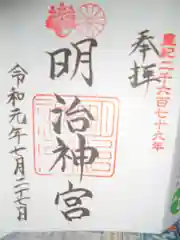 奉拝
皇紀二千六百七十九年
明治神宮
令和元年七月二十七日